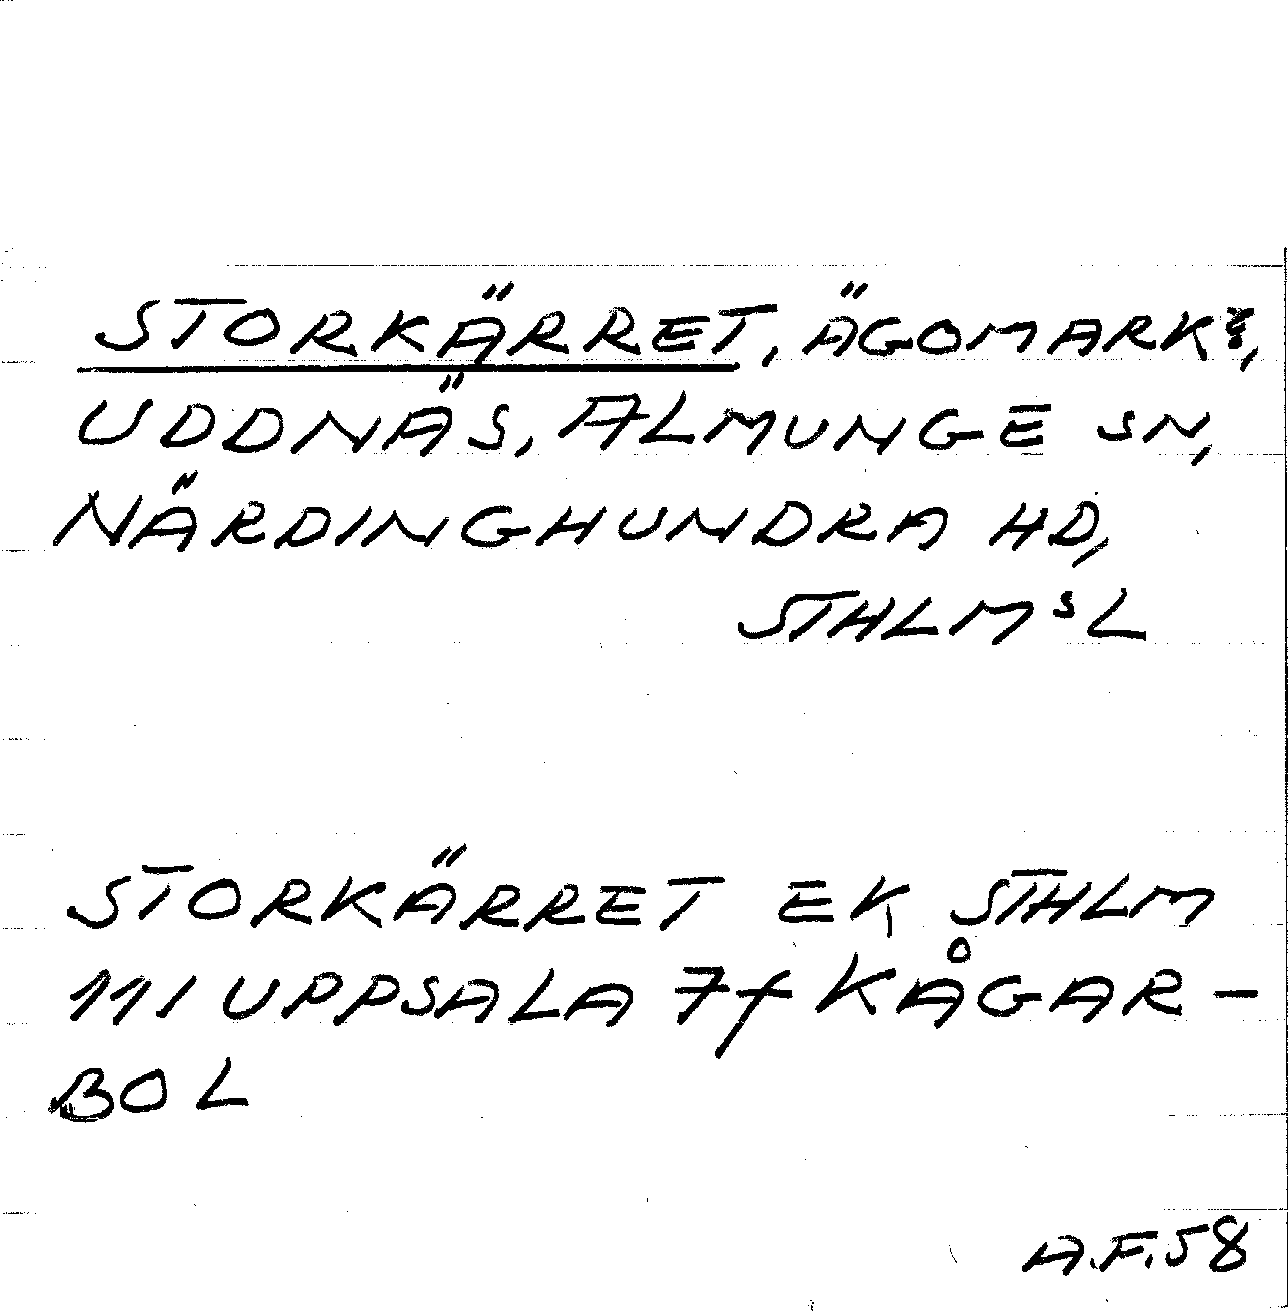 STORKÄRRET, ÄGOMARK,
UDDNÄS, ALMUNGE SN,
NÄRDINGHUNDRA HD,
STHLMˢ L
STORKÄRRET EK STHLM
111 UPPSALA 7f KÅGAR-
BOL
A.F. 58